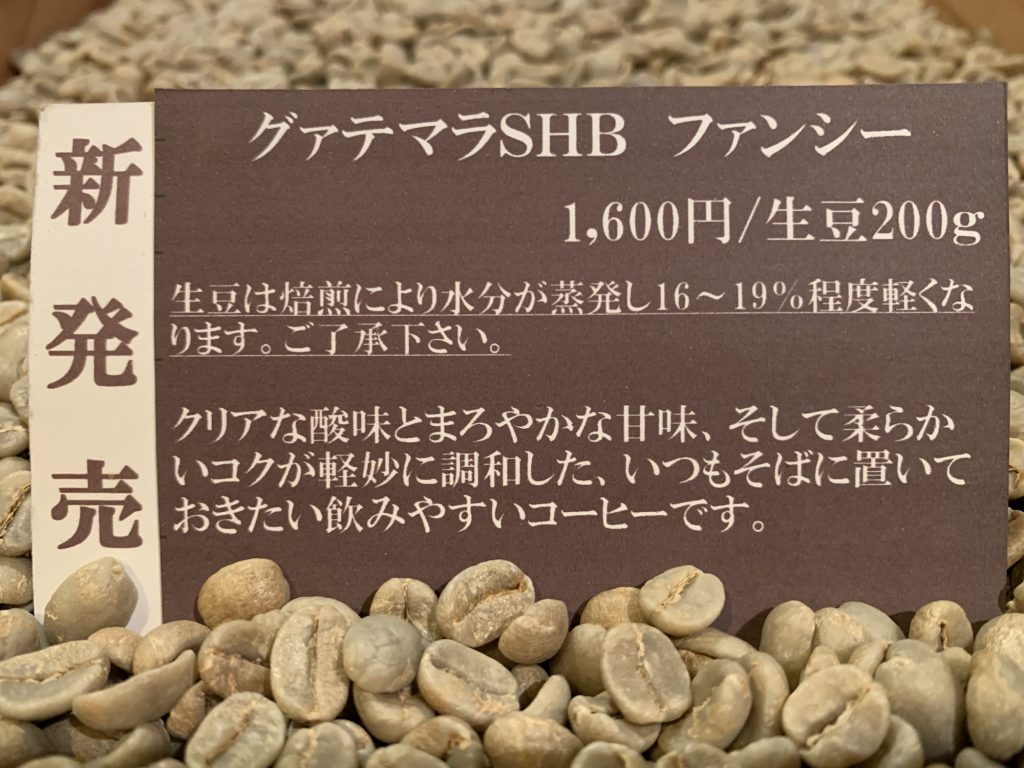 新発売
グァテマラSHB ファンシー
1,600円/生豆200g
生豆は焙煎により水分が蒸発し16～19%程度軽くな
ります。ご了承下さい。
クリアな酸味とまろやかな甘味、そして柔らか
いコクが軽妙に調和した、いつもそばに置いて
おきたい飲みやすいコーヒーです。